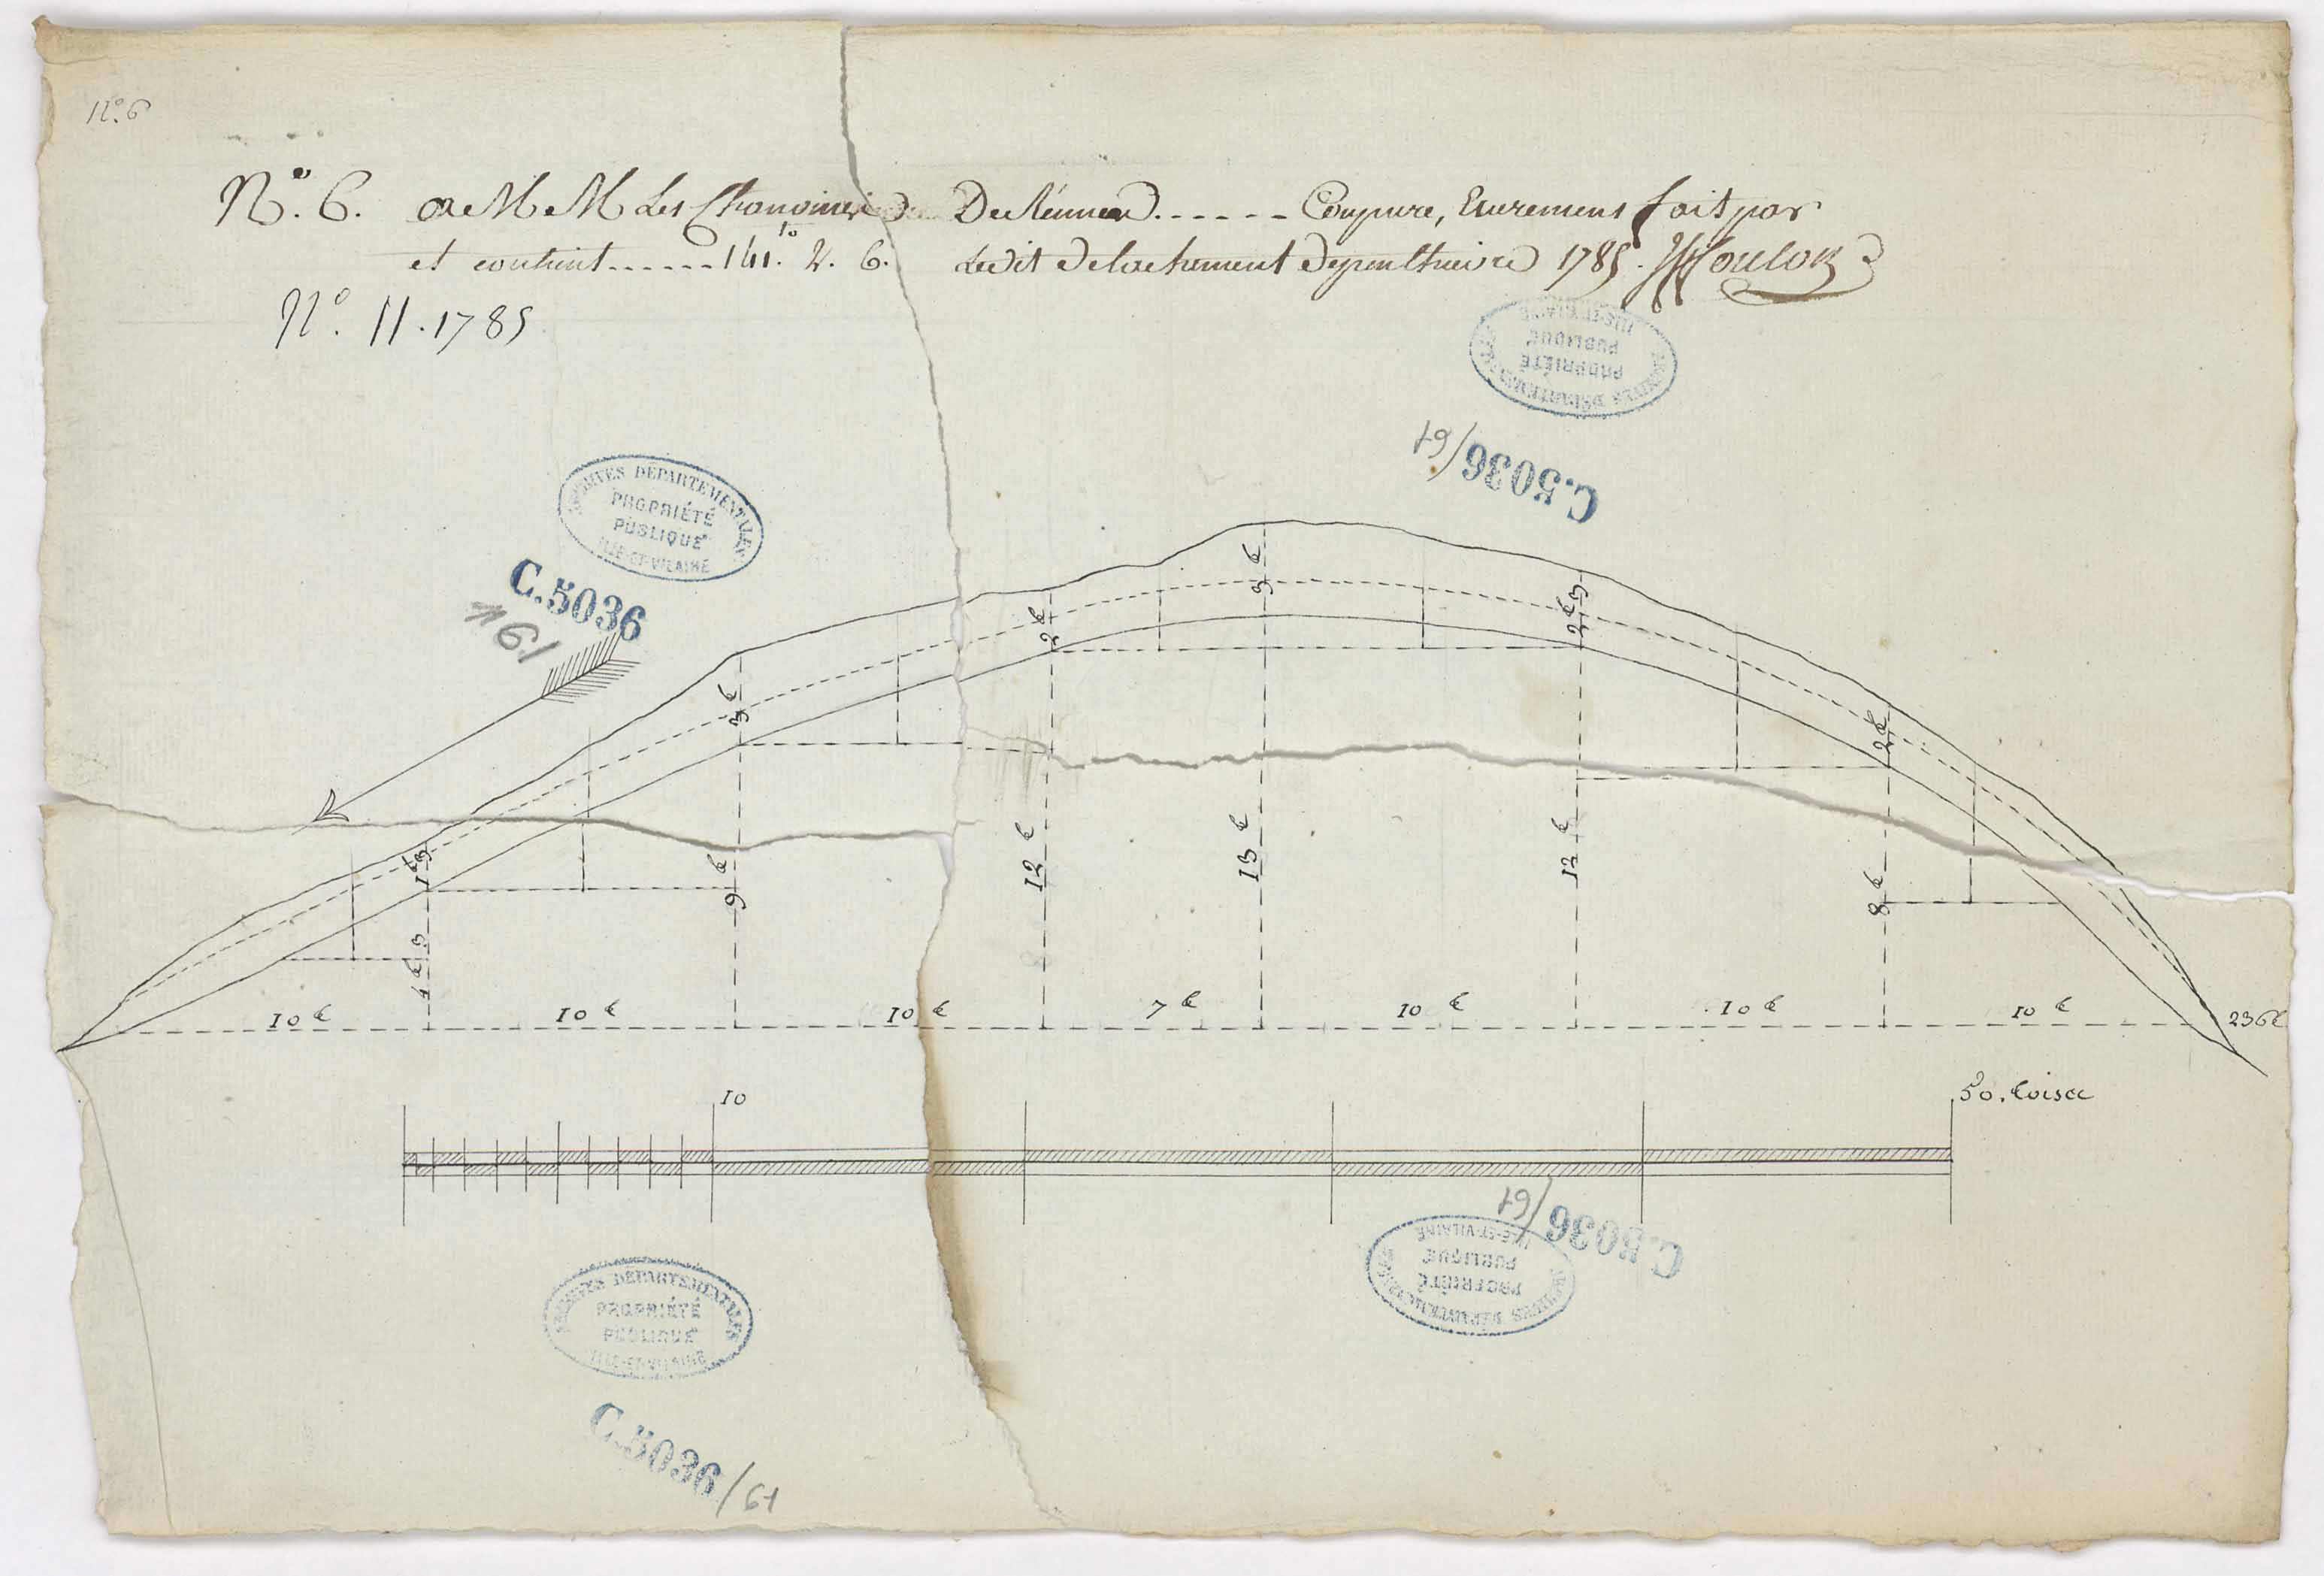 N.° 6
N.° 6. a MM Les Chanoines De Rennes ...... Coupure, Curement fait par
et contient ...... 141.to 2. 6. Ledit Detachement De penthievre 1785.
N.° 11. 1785
ARCHIVES DÉPARTEMENTALES
PROPRIÉTÉ
PUBLIQUE
ILLE-ET-VILAINE
C.5036/61
ARCHIVES DÉPARTEMENTALES
PROPRIÉTÉ
PUBLIQUE
ILLE-ET-VILAINE
C.5036
/61
3 t
2 t 3
2 t
3 t
2 t
1 t 3
12 t
13 t
12 t
9 t
8 t
4 t 3
10 t 10 t 10 t 7 t 10 t 10 t 10 t 236 t
10 50. toises
C.5036/61
ARCHIVES DÉPARTEMENTALES
PROPRIÉTÉ
PUBLIQUE
ILLE-ET-VILAINE
ARCHIVES DÉPARTEMENTALES
PROPRIÉTÉ
PUBLIQUE
ILLE-ET-VILAINE
C.5036/61